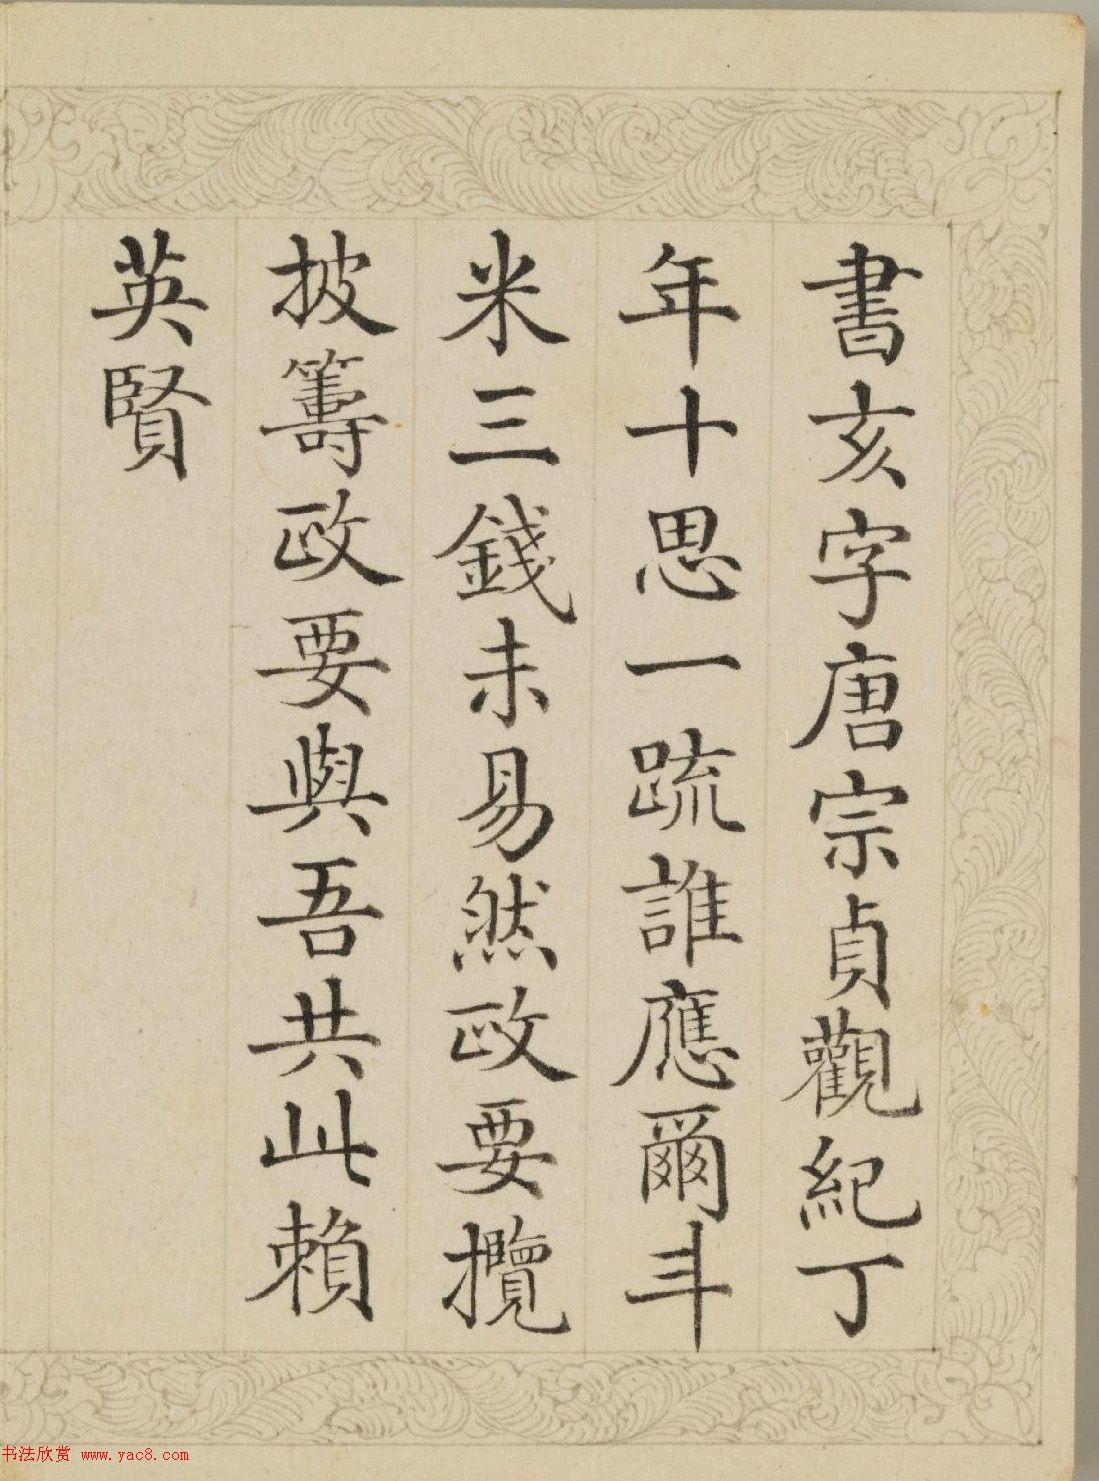 書亥字唐宗貞觀紀丁
年十思一疏誰應爾斗
米三錢未易然政要攬
披籌政要與吾共此賴
英賢
书法欣赏 www.yac8.com